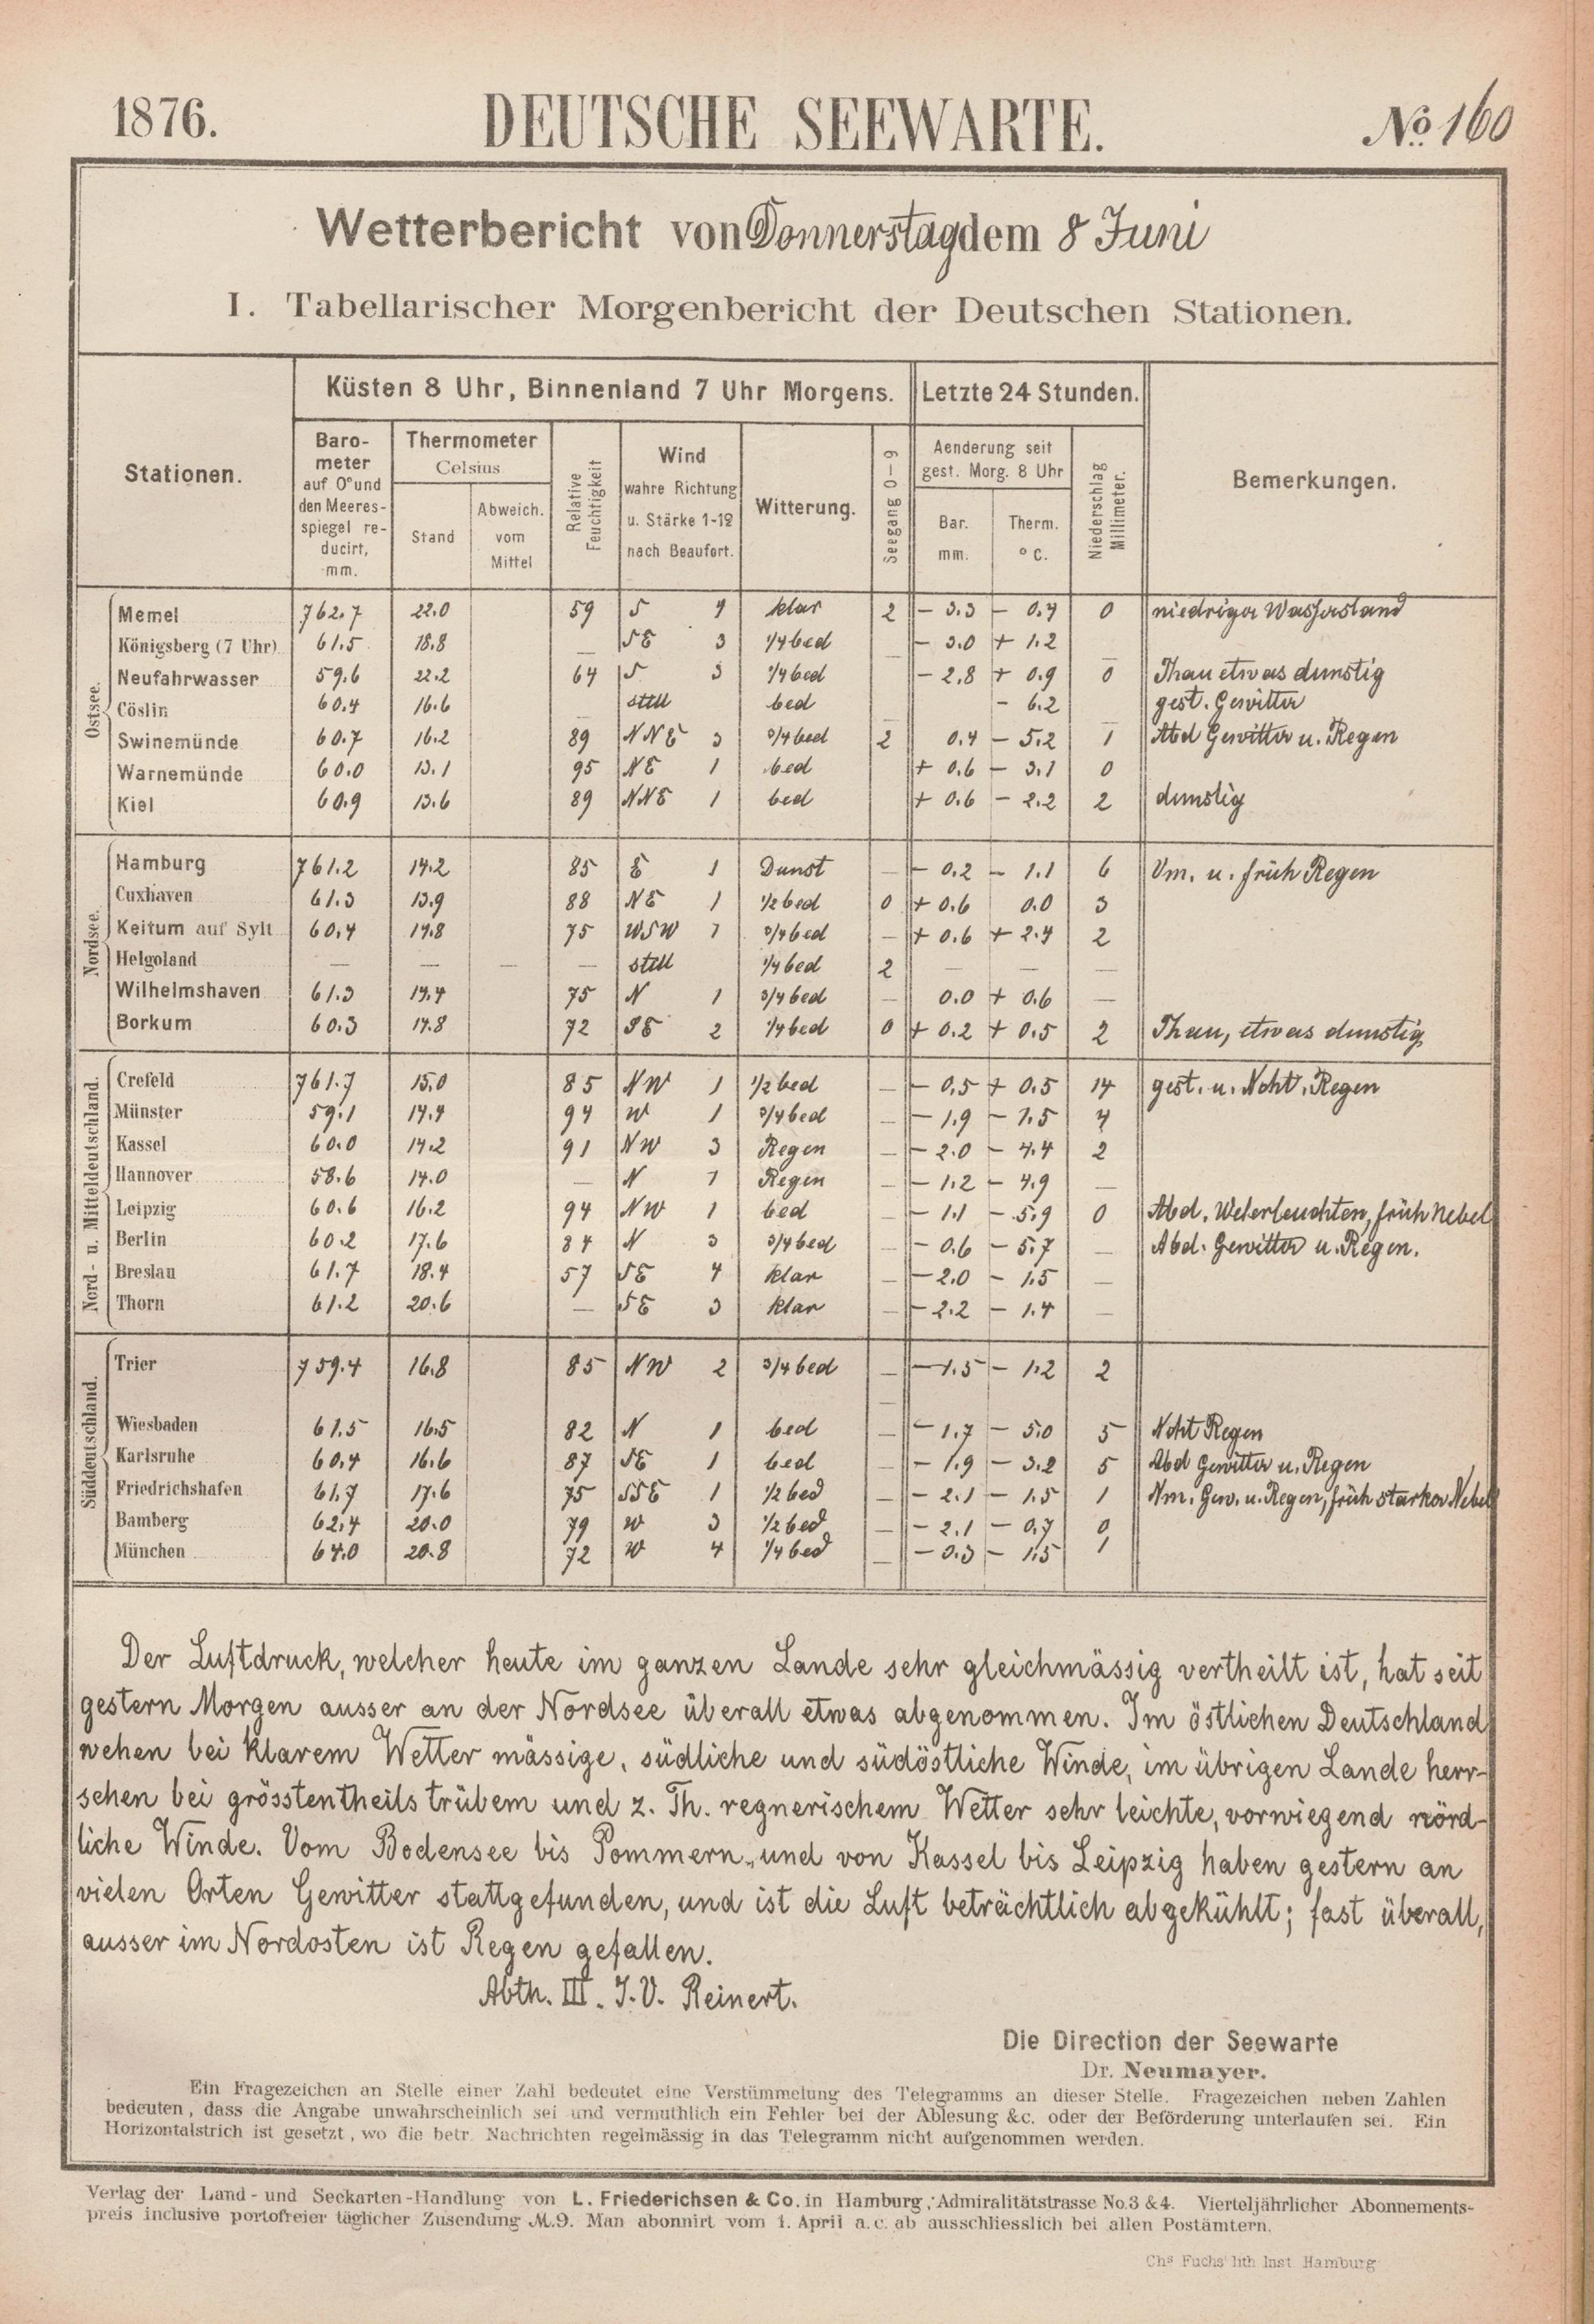 1876. DEUTSCHE SEEWARTE. No. 160
Wetterbericht von Donnerstag dem 8 Juni
I. Tabellarischer Morgenbericht der Deutschen Stationen.
Stationen. Küsten 8 Uhr, Binnenland 7 Uhr Morgens. Letzte 24 Stunden. Bemerkungen.
Barometer auf 0° und den Meeresspiegel reducirt, mm. Thermometer Celsius Stand Abweich. vom Mittel Relative Feuchtigkeit Wind wahre Richtung u. Stärke 1-12 nach Beaufort. Witterung. Seegang 0-9 Aenderung seit gest. Morg. 8 Uhr Bar. mm. Therm. ° C. Niederschlag Millimeter.
Ostsee.
Memel 762.7 22.0 59 S 4 klar 2 - 3.3 - 0.4 0 niedriger Wasserstand
Königsberg (7 Uhr) 61.5 18.8 — SE 3 1/4 bed — - 3.0 + 1.2 —
Neufahrwasser 59.6 22.2 64 S 3 1/4 bed - 2.8 + 0.9 0 Thau etwas dunstig
Cöslin 60.4 16.6 — still bed — - 6.2 — gest. Gewitter
Swinemünde 60.7 16.2 89 NNE 3 3/4 bed 2 0.4 - 5.2 1 Abd Gewitter u. Regen
Warnemünde 60.0 13.1 95 NE 1 bed + 0.6 - 3.1 0
Kiel 60.9 13.6 89 NNE 1 bed + 0.6 - 2.2 2 dunstig
Nordsee.
Hamburg 761.2 14.2 85 E 1 Dunst — - 0.2 - 1.1 6 Vm. u. früh Regen
Cuxhaven 61.3 13.9 88 NE 1 1/2 bed 0 + 0.6 0.0 3
Keitum auf Sylt 60.4 14.8 75 WSW 1 3/4 bed — + 0.6 + 2.4 2
Helgoland — — — — still 1/4 bed 2 — — —
Wilhelmshaven 61.3 14.4 75 N 1 3/4 bed — 0.0 + 0.6 —
Borkum 60.3 14.8 72 SE 2 1/4 bed 0 + 0.2 + 0.5 2 Thau, etwas dunstig
Nord- u. Mitteldeutschland.
Crefeld 761.7 15.0 85 NW 1 1/2 bed — - 0.5 + 0.5 14 gest. u. Ncht. Regen
Münster 59.1 14.4 94 W 1 3/4 bed — - 1.9 - 1.5 4
Kassel 60.0 14.2 91 NW 3 Regen — - 2.0 - 4.4 2
Hannover 58.6 14.0 — N 1 Regen — - 1.2 - 4.9 —
Leipzig 60.6 16.2 94 NW 1 bed — - 1.1 - 5.9 0 Abd. Weterleuchten, früh Nebel
Berlin 60.2 17.6 84 N 3 3/4 bed — - 0.6 - 5.7 — Abd. Gewitter u. Regen.
Breslau 61.7 18.4 57 SE 4 klar — - 2.0 - 1.5 —
Thorn 61.2 20.6 — SE 3 klar — - 2.2 - 1.4 —
Süddeutschland.
Trier 759.4 16.8 85 NW 2 3/4 bed — - 1.5 - 1.2 2
Wiesbaden 61.5 16.5 82 N 1 bed — - 1.7 - 5.0 5 Ncht Regen
Karlsruhe 60.4 16.6 87 SE 1 bed — - 1.9 - 3.2 5 Abd Gewitter u. Regen
Friedrichshafen 61.7 17.6 75 SSE 1 1/2 bed — - 2.1 - 1.5 1 Nm. Gew. u. Regen, früh starker Nebel
Bamberg 62.4 20.0 79 W 3 1/2 bed — - 2.1 - 0.7 0
München 64.0 20.8 72 W 4 1/4 bed — - 0.3 - 1.5 1
Der Luftdruck, welcher heute im ganzen Lande sehr gleichmässig vertheilt ist, hat seit
gestern Morgen ausser an der Nordsee überall etwas abgenommen. Im östlichen Deutschland
wehen bei klarem Wetter mässige, südliche und südöstliche Winde, im übrigen Lande herr-
schen bei grösstentheils trübem und z. Th. regnerischem Wetter sehr leichte, vorwiegend nörd-
liche Winde. Vom Bodensee bis Pommern, und von Kassel bis Leipzig haben gestern an
vielen Orten Gewitter stattgefunden, und ist die Luft beträchtlich abgekühlt; fast überall,
ausser im Nordosten ist Regen gefallen.
Abth. III. I.V. Reinert.
Die Direction der Seewarte
Dr. Neumayer.
Ein Fragezeichen an Stelle einer Zahl bedeutet eine Verstümmelung des Telegramms an dieser Stelle. Fragezeichen neben Zahlen
bedeuten, dass die Angabe unwahrscheinlich sei und vermuthlich ein Fehler bei der Ablesung &c. oder der Beförderung unterlaufen sei. Ein
Horizontalstrich ist gesetzt, wo die betr. Nachrichten regelmässig in das Telegramm nicht aufgenommen werden.
Verlag der Land- und Seekarten-Handlung von L. Friederichsen & Co. in Hamburg, Admiralitätstrasse No. 3 & 4. Vierteljährlicher Abonnements-
preis inclusive portofreier täglicher Zusendung M. 9. Man abonnirt vom 1. April a. c. ab ausschliesslich bei allen Postämtern.
Chs Fuchs' lith Inst. Hamburg